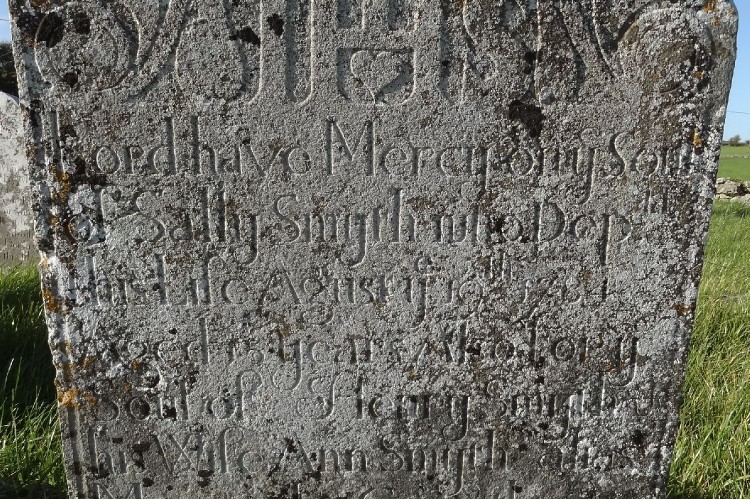 IHS
Lord have Mercy on yᵉ Soul
of Sally Smyth who Depᵈ
this Life Agust yᵉ 19ᵗʰ 1781
Aged 15 years Also for yᵉ
Soul of Henry Smyth &
his Wife Ann Smyth alias